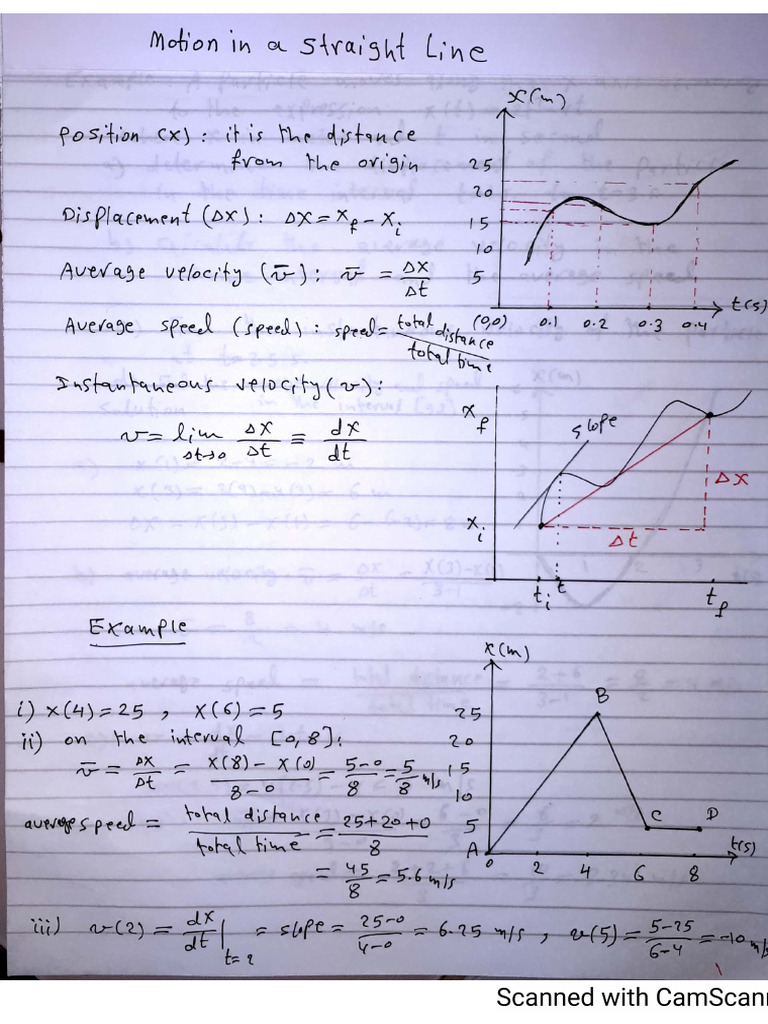 Motion in a straight Line
Position (x) : it is the distance
from the origin
Displacement (Δx) : Δx = x_f − x_i
Average velocity (v̄) : v̄ = Δx/Δt
Average speed (speed) : speed = total distance/total time
Instantaneous velocity (v) :
v = lim_{Δt→0} Δx/Δt ≡ dx/dt
x(m)
25
20
15
10
5
(0,0) 0.1 0.2 0.3 0.4 t(s)
x_f
slope
Δx
x_i
Δt
t_i t t_f
Example
i) x(4) = 25 , x(6) = 5
ii) on the interval [0,8] :
v̄ = Δx/Δt = x(8) − x(0)/8−0 = 5−0/8 = 5/8 m/s
average speed = total distance/total time = 25+20+0/8
= 45/8 = 5.6 m/s
x(m)
B
25
20
15
10
5
C D
A
0 2 4 6 8 t(s)
iii) v(2) = dx/dt|_{t=2} = slope = 25−0/4−0 = 6.25 m/s , v(5) = 5−25/6−4 = −10 m/s
Scanned with CamScann